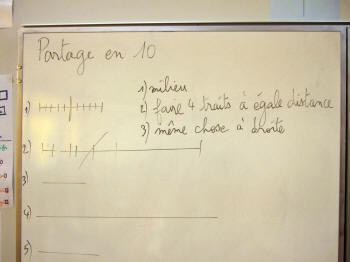 Partage en 10
1) milieu
2) faire 4 traits à égale distance
3) même chose à droite
1)
2)
3)
4)
5)